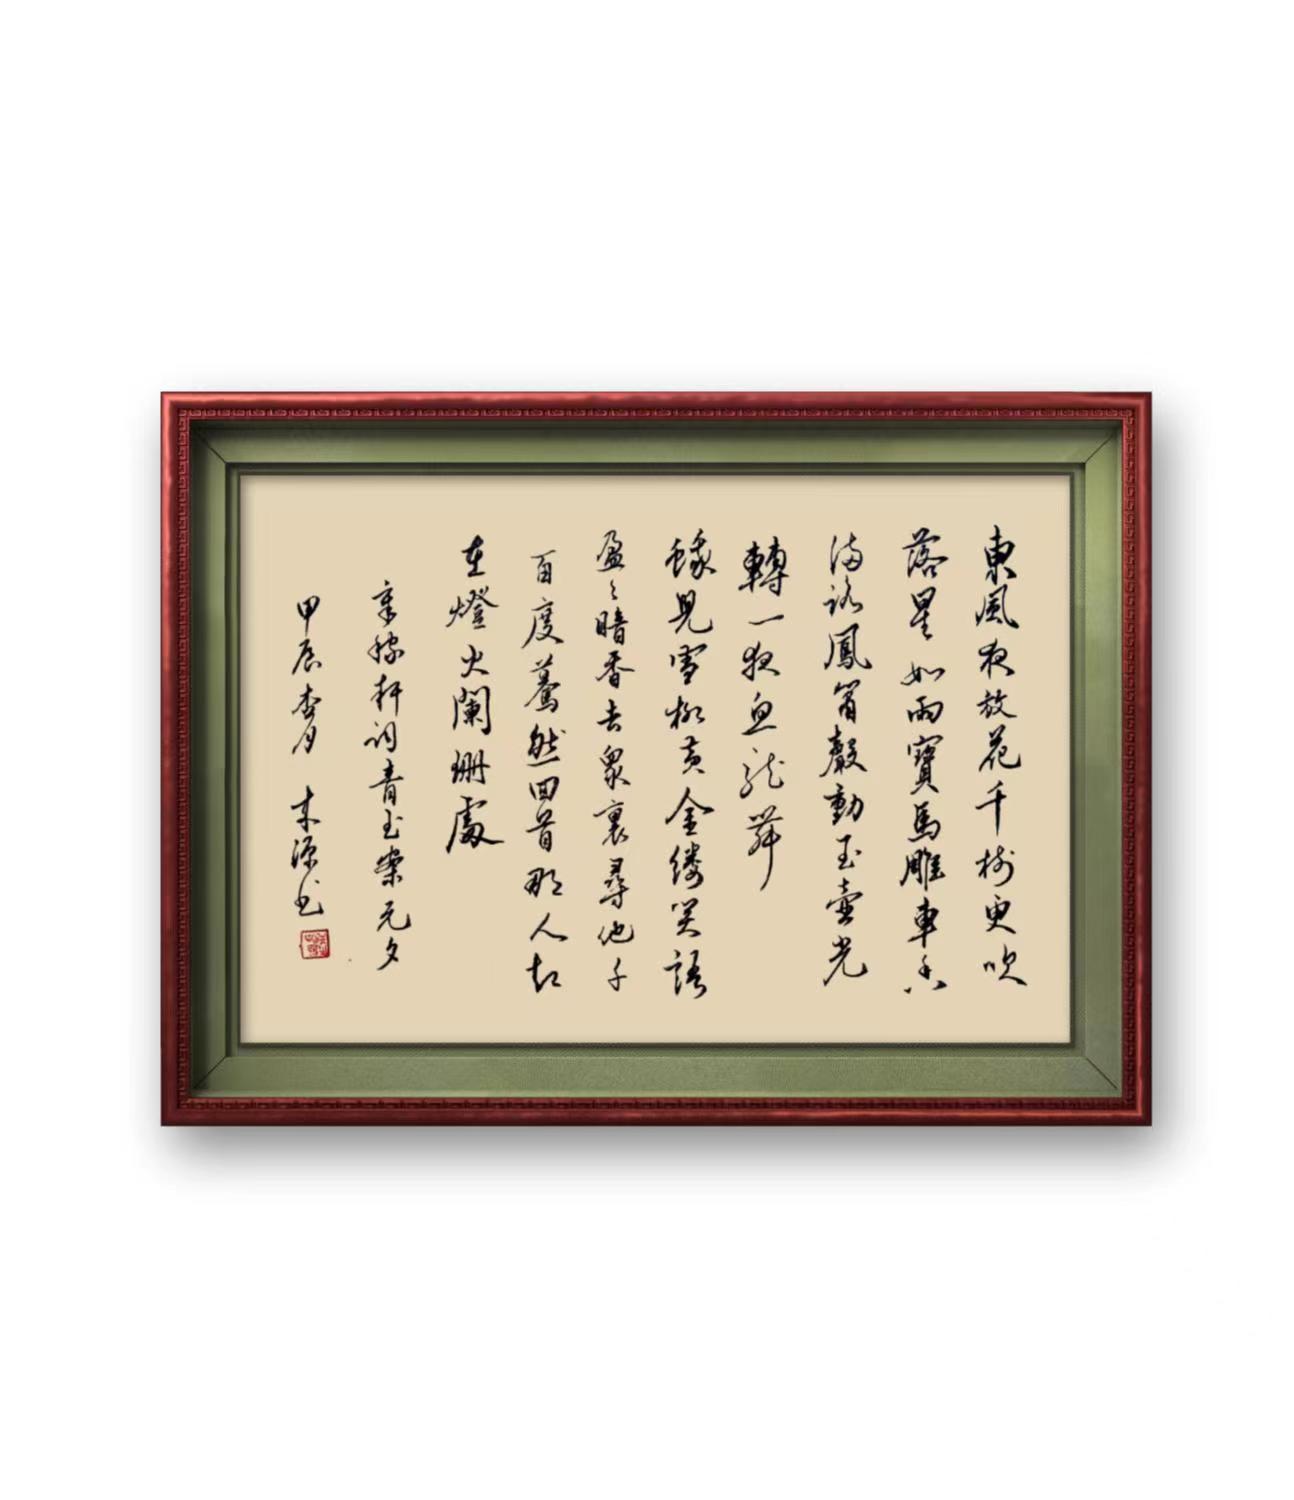 東風夜放花千樹更吹
落星如雨寶馬雕車香
滿路鳳簫聲動玉壺光
轉一夜魚龍舞
蛾兒雪柳黃金縷笑語
盈々暗香去眾裏尋他千
百度驀然回首那人却
在燈火闌珊處
辛稼軒詞青玉案元夕
甲辰杏月 木源书